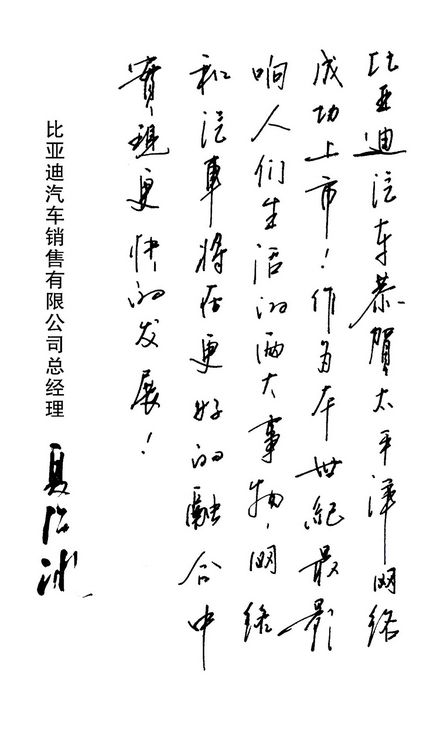 比亚迪汽车恭賀太平洋网络
成功上市！作为本世纪最影
响人们生活的两大事物，网络
和汽車将在更好的融合中
實現更快的发展！
比亚迪汽车销售有限公司总经理
夏治冰